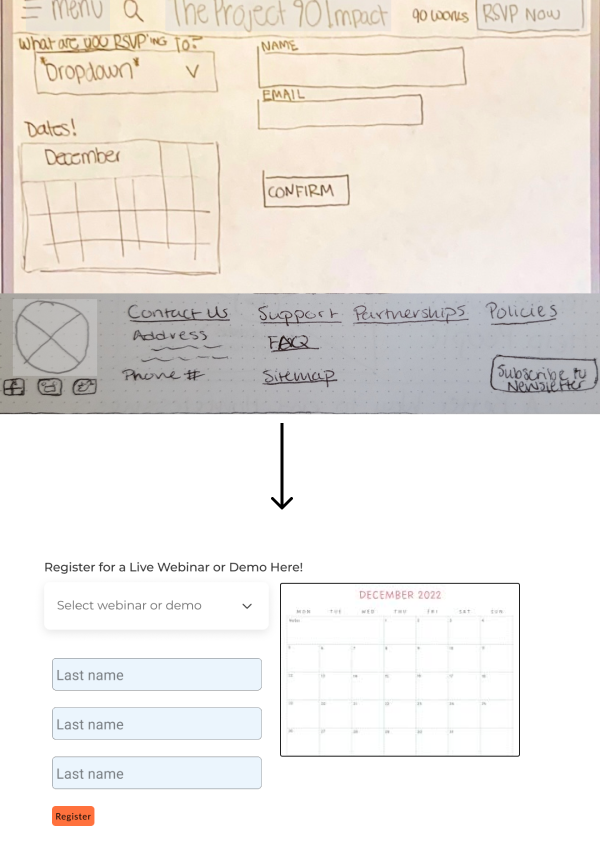 Menu The Project 90 Impact 90 Works RSVP Now
What are you RSVP'ing To?
"Dropdown"
NAME
EMAIL
Dates!
December
CONFIRM
Contact Us Support Partnerships Policies
Address FAQ
Phone # Sitemap Subscribe to
Newsletter
Register for a Live Webinar or Demo Here!
Select webinar or demo
Last name
Last name
Last name
Register
DECEMBER 2022
MON TUE WED THU FRI SAT SUN
1 2 3 4
5 6 7 8 9 10 11
12 13 14 15 16 17 18
19 20 21 22 23 24 25
26 27 28 29 30 31